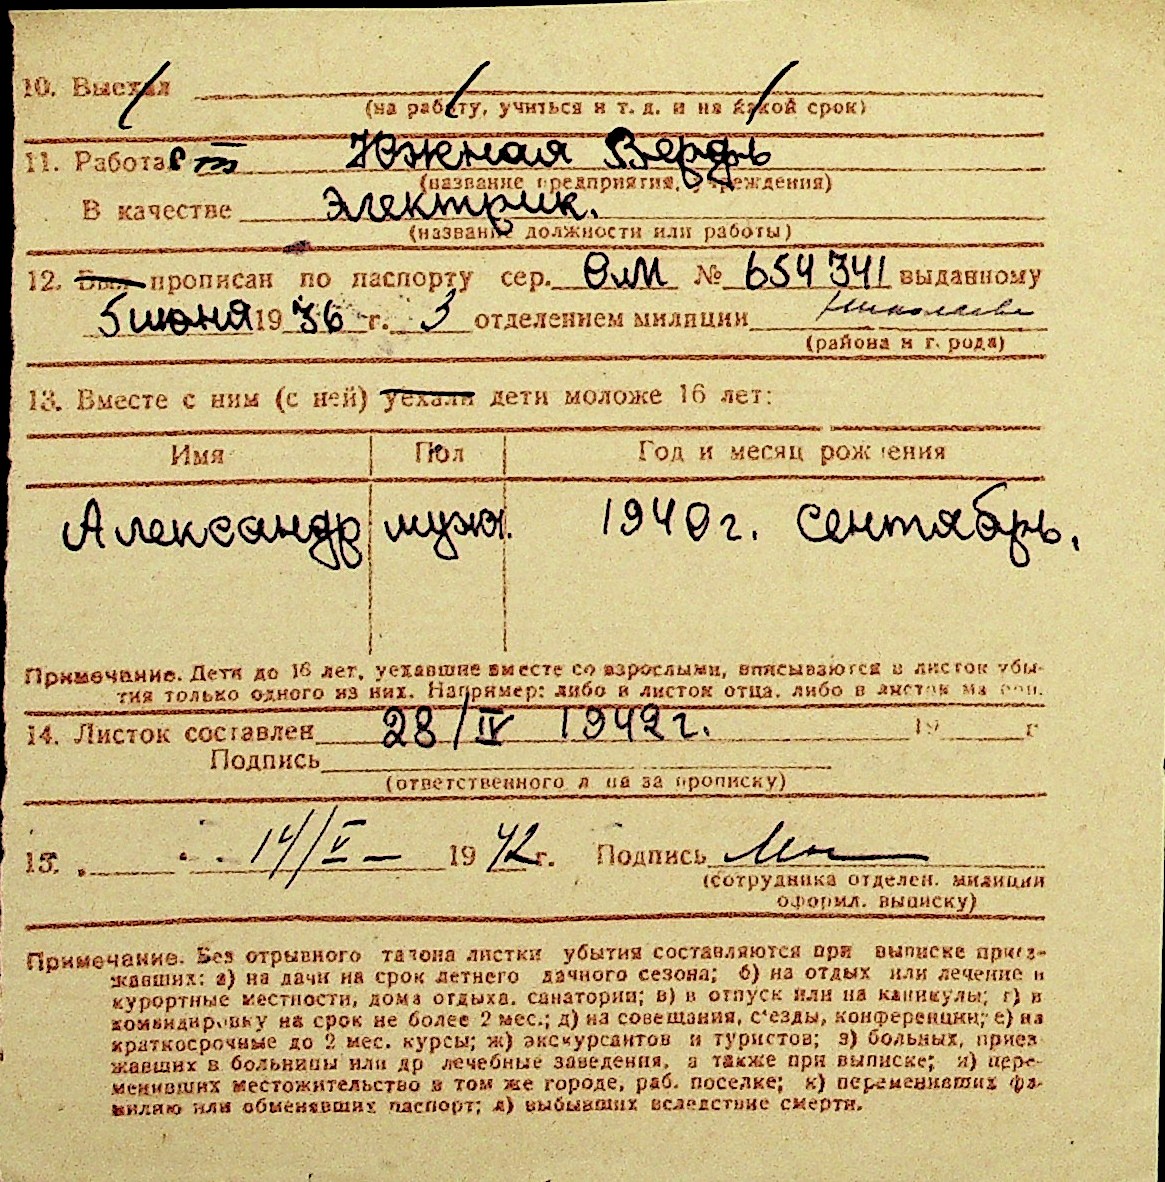 10. Выехал
(на работу, учиться и т. д. и на какой срок)
11. Работает Южная Верфь
(название предприятия, учреждения)
В качестве Электрик.
(название должности или работы)
12. Был прописан по паспорту сер. № 654341 выданному
5 июня 1936 г. 3 отделением милиции Николаева
(района и города)
13. Вместе с ним (с ней) уехали дети моложе 16 лет:
Имя Пол Год и месяц рождения
Александр муж. 1940 г. сентябрь.
Примечание. Дети до 16 лет, уехавшие вместе со взрослыми, вписываются в листок убы-
тия только одного из них. Например: либо в листок отца, либо в листок матери.
14. Листок составлен 28/IV 1942 г. 19 г
Подпись
(ответственного лица за прописку)
15. 14/V 1942 г. Подпись
(сотрудника отделен. милиции
оформл. выписку)
Примечание. Без отрывного талона листки убытия составляются при выписке приез-
жавших: а) на дачи на срок летнего дачного сезона; б) на отдых или лечение в
курортные местности, дома отдыха, санатории; в) в отпуск или на каникулы; г) в
командировку на срок не более 2 мес.; д) на совещания, с'езды, конференции; е) на
краткосрочные до 2 мес. курсы; ж) экскурсантов и туристов; з) больных, приез
жавших в больницы или др лечебные заведения, а также при выписке; и) пере-
менивших местожительство в том же городе, раб. поселке; к) переменивших фа-
милию или обменявших паспорт; л) выбывших вследствие смерти.